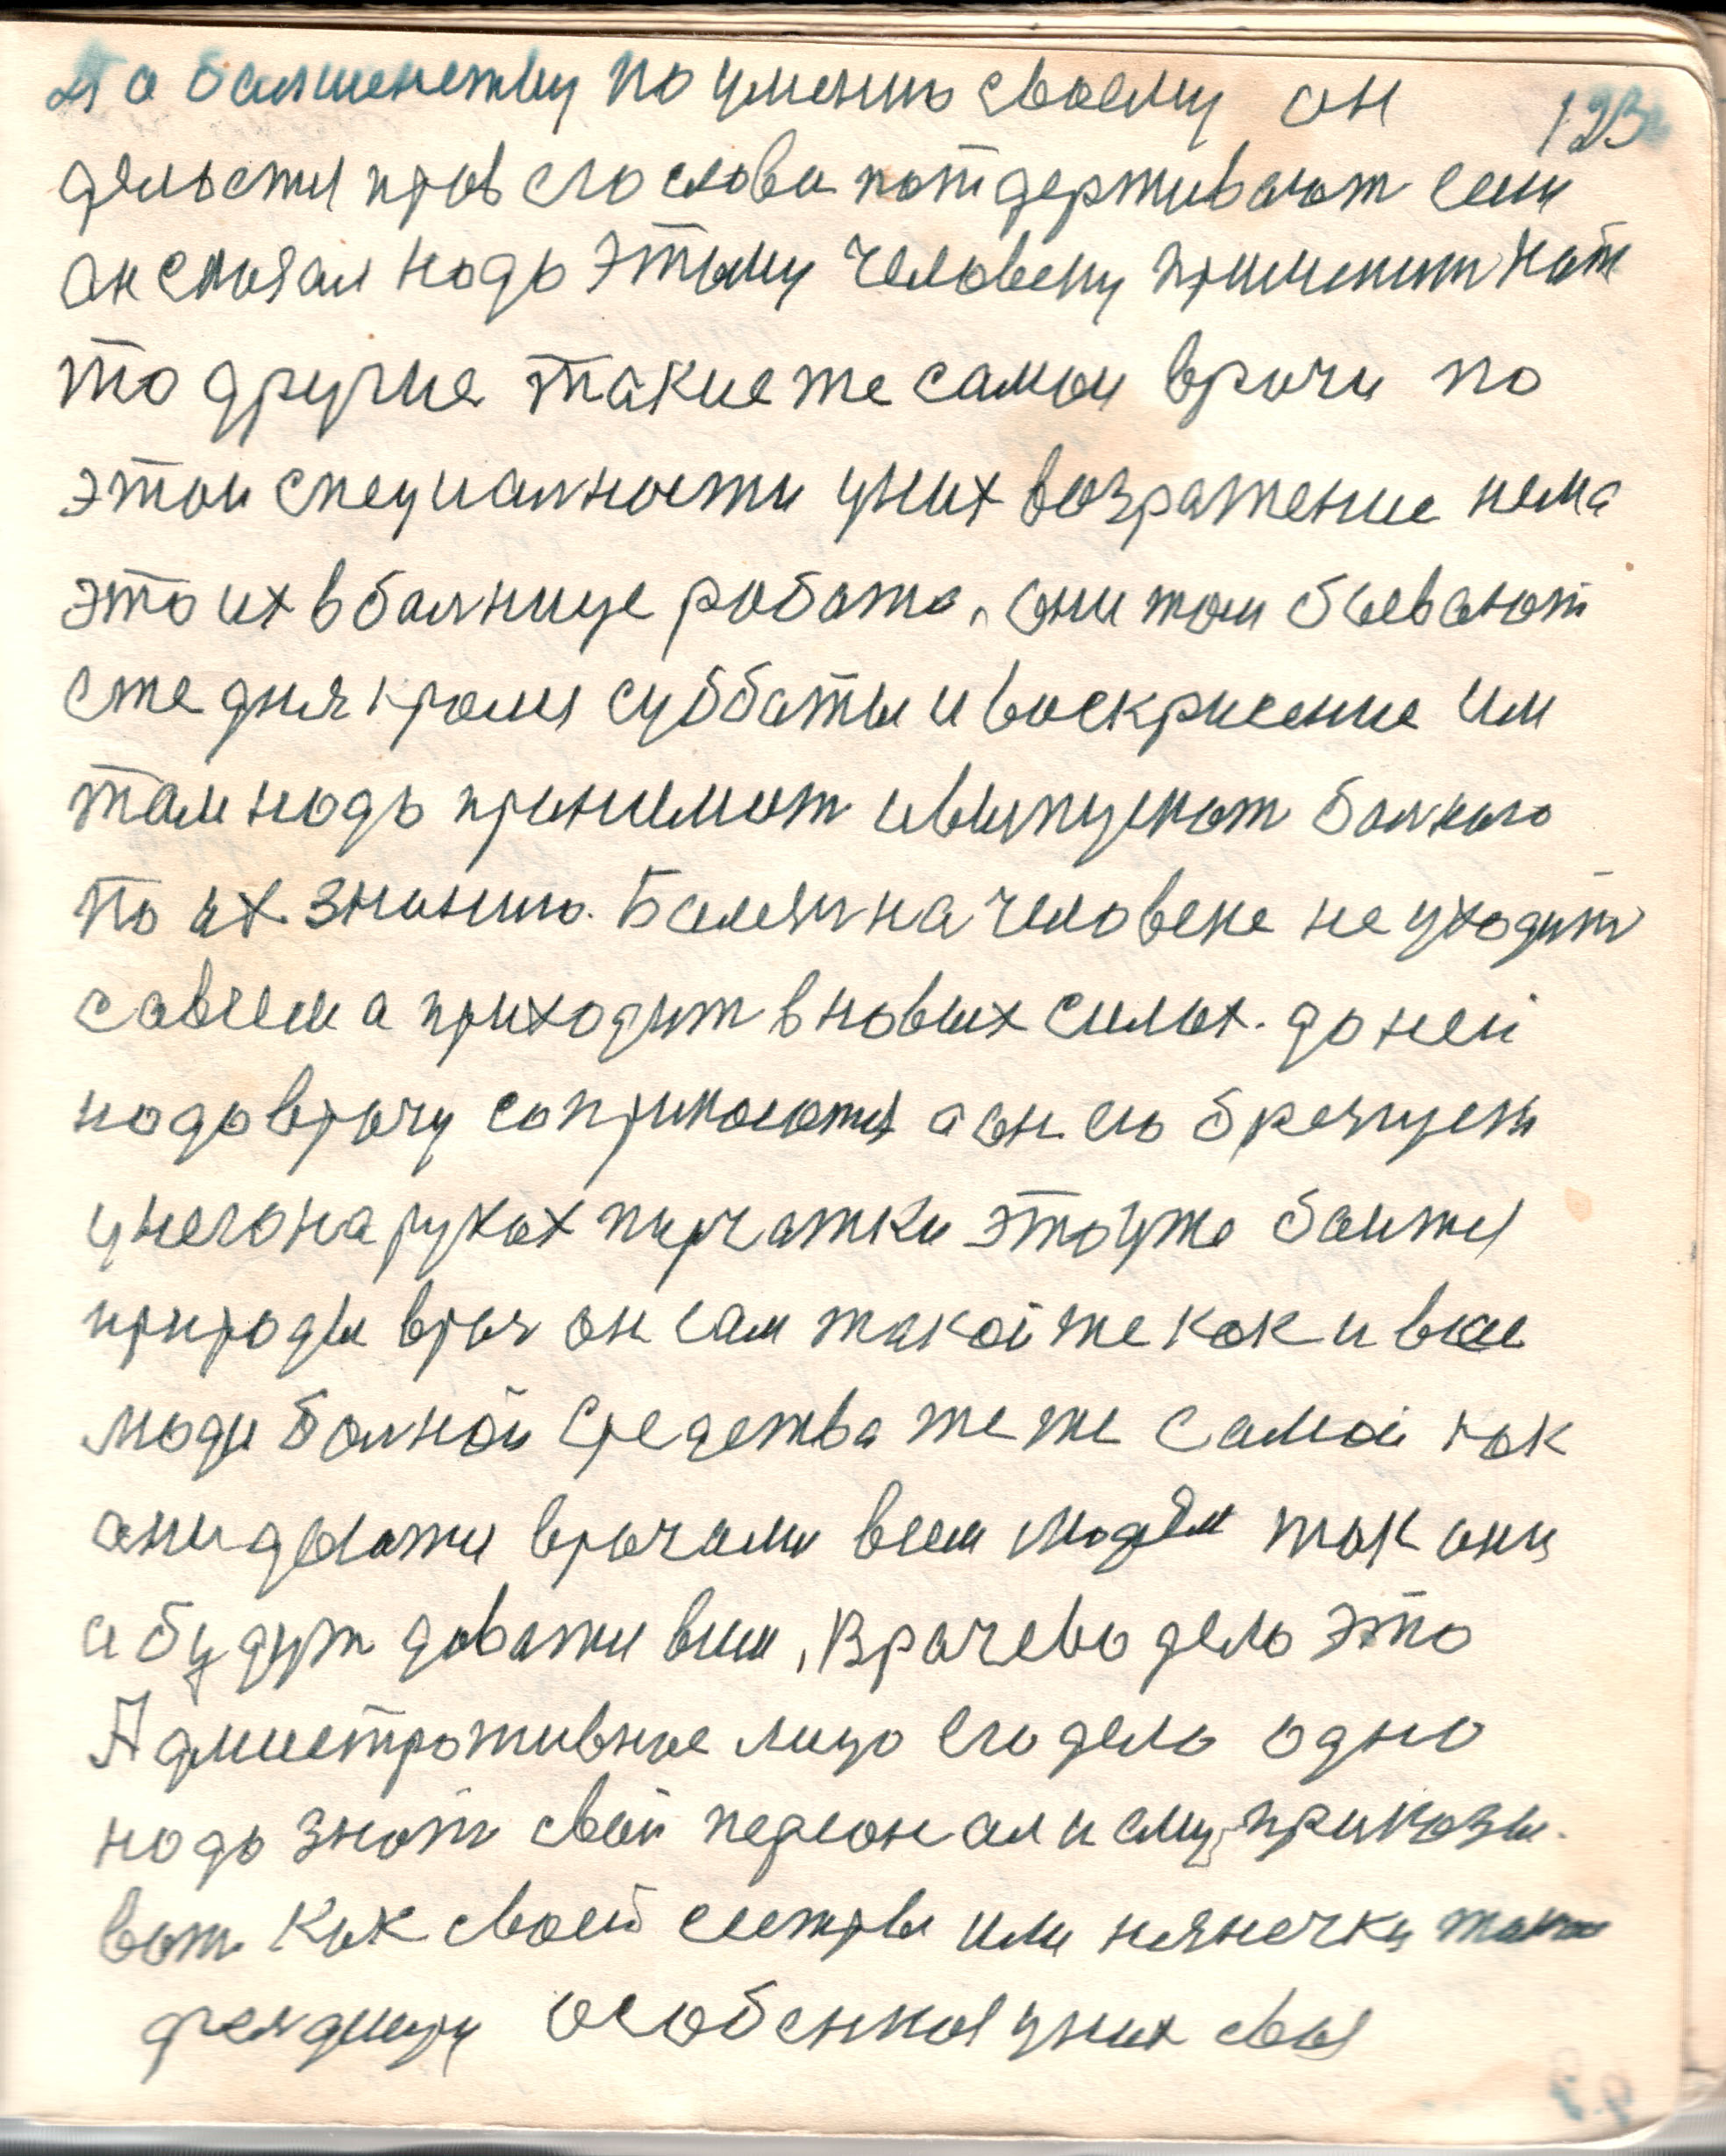 По балшенству по умению своему он
123
дельстя прав его слова потдерживают если
он сказал надо этому человеку применит нат
то другие такие же самыи врачи по
этои специалности у них возражение нема
это их в балнице работа, они там бывают
все дня кромя субботы и воскрисение им
там надо принимат и выпускат балного
по их знанию. Балезн на человеке не уходит
савсем а приходит в новых силах. до ней
надо врачу соприкаснотся а он ею брезгует
у него на руках пирчатки это уже боится
природы врач он сам такой же как и все
люди балной средства те же самои как
они дёлали врачами всем людям так они
и будут давати всим, Врачево дело это
Адмистротивное лицо его дело одно
надо знат свой персонал и ему приказы-
ват. Как своей сестры или нянечки также
фелдшеру особенная у них своя